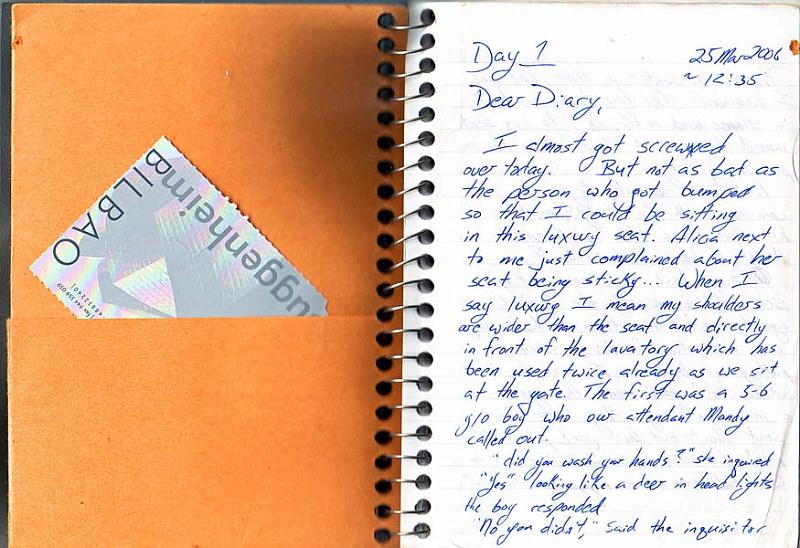 BILBAO
uggenheim
Day 1
25 Mar 2006
~ 12:35
Dear Diary,
I almost got screwed
over today. But not as bad as
the person who got bumped
so that I could be sitting
in this luxury seat. Alicia next
to me just complained about her
seat being sticky... When I
say luxury I mean my shoulders
are wider than the seat and directly
in front of the lavatory which has
been used twice already as we sit
at the gate. The first was a 5-6
y/o boy who our attendant Mandy
called out.
"did you wash your hands?" she inquired
"Yes" looking like a deer in head lights
the boy responded
"No you didn't," said the inquisitor